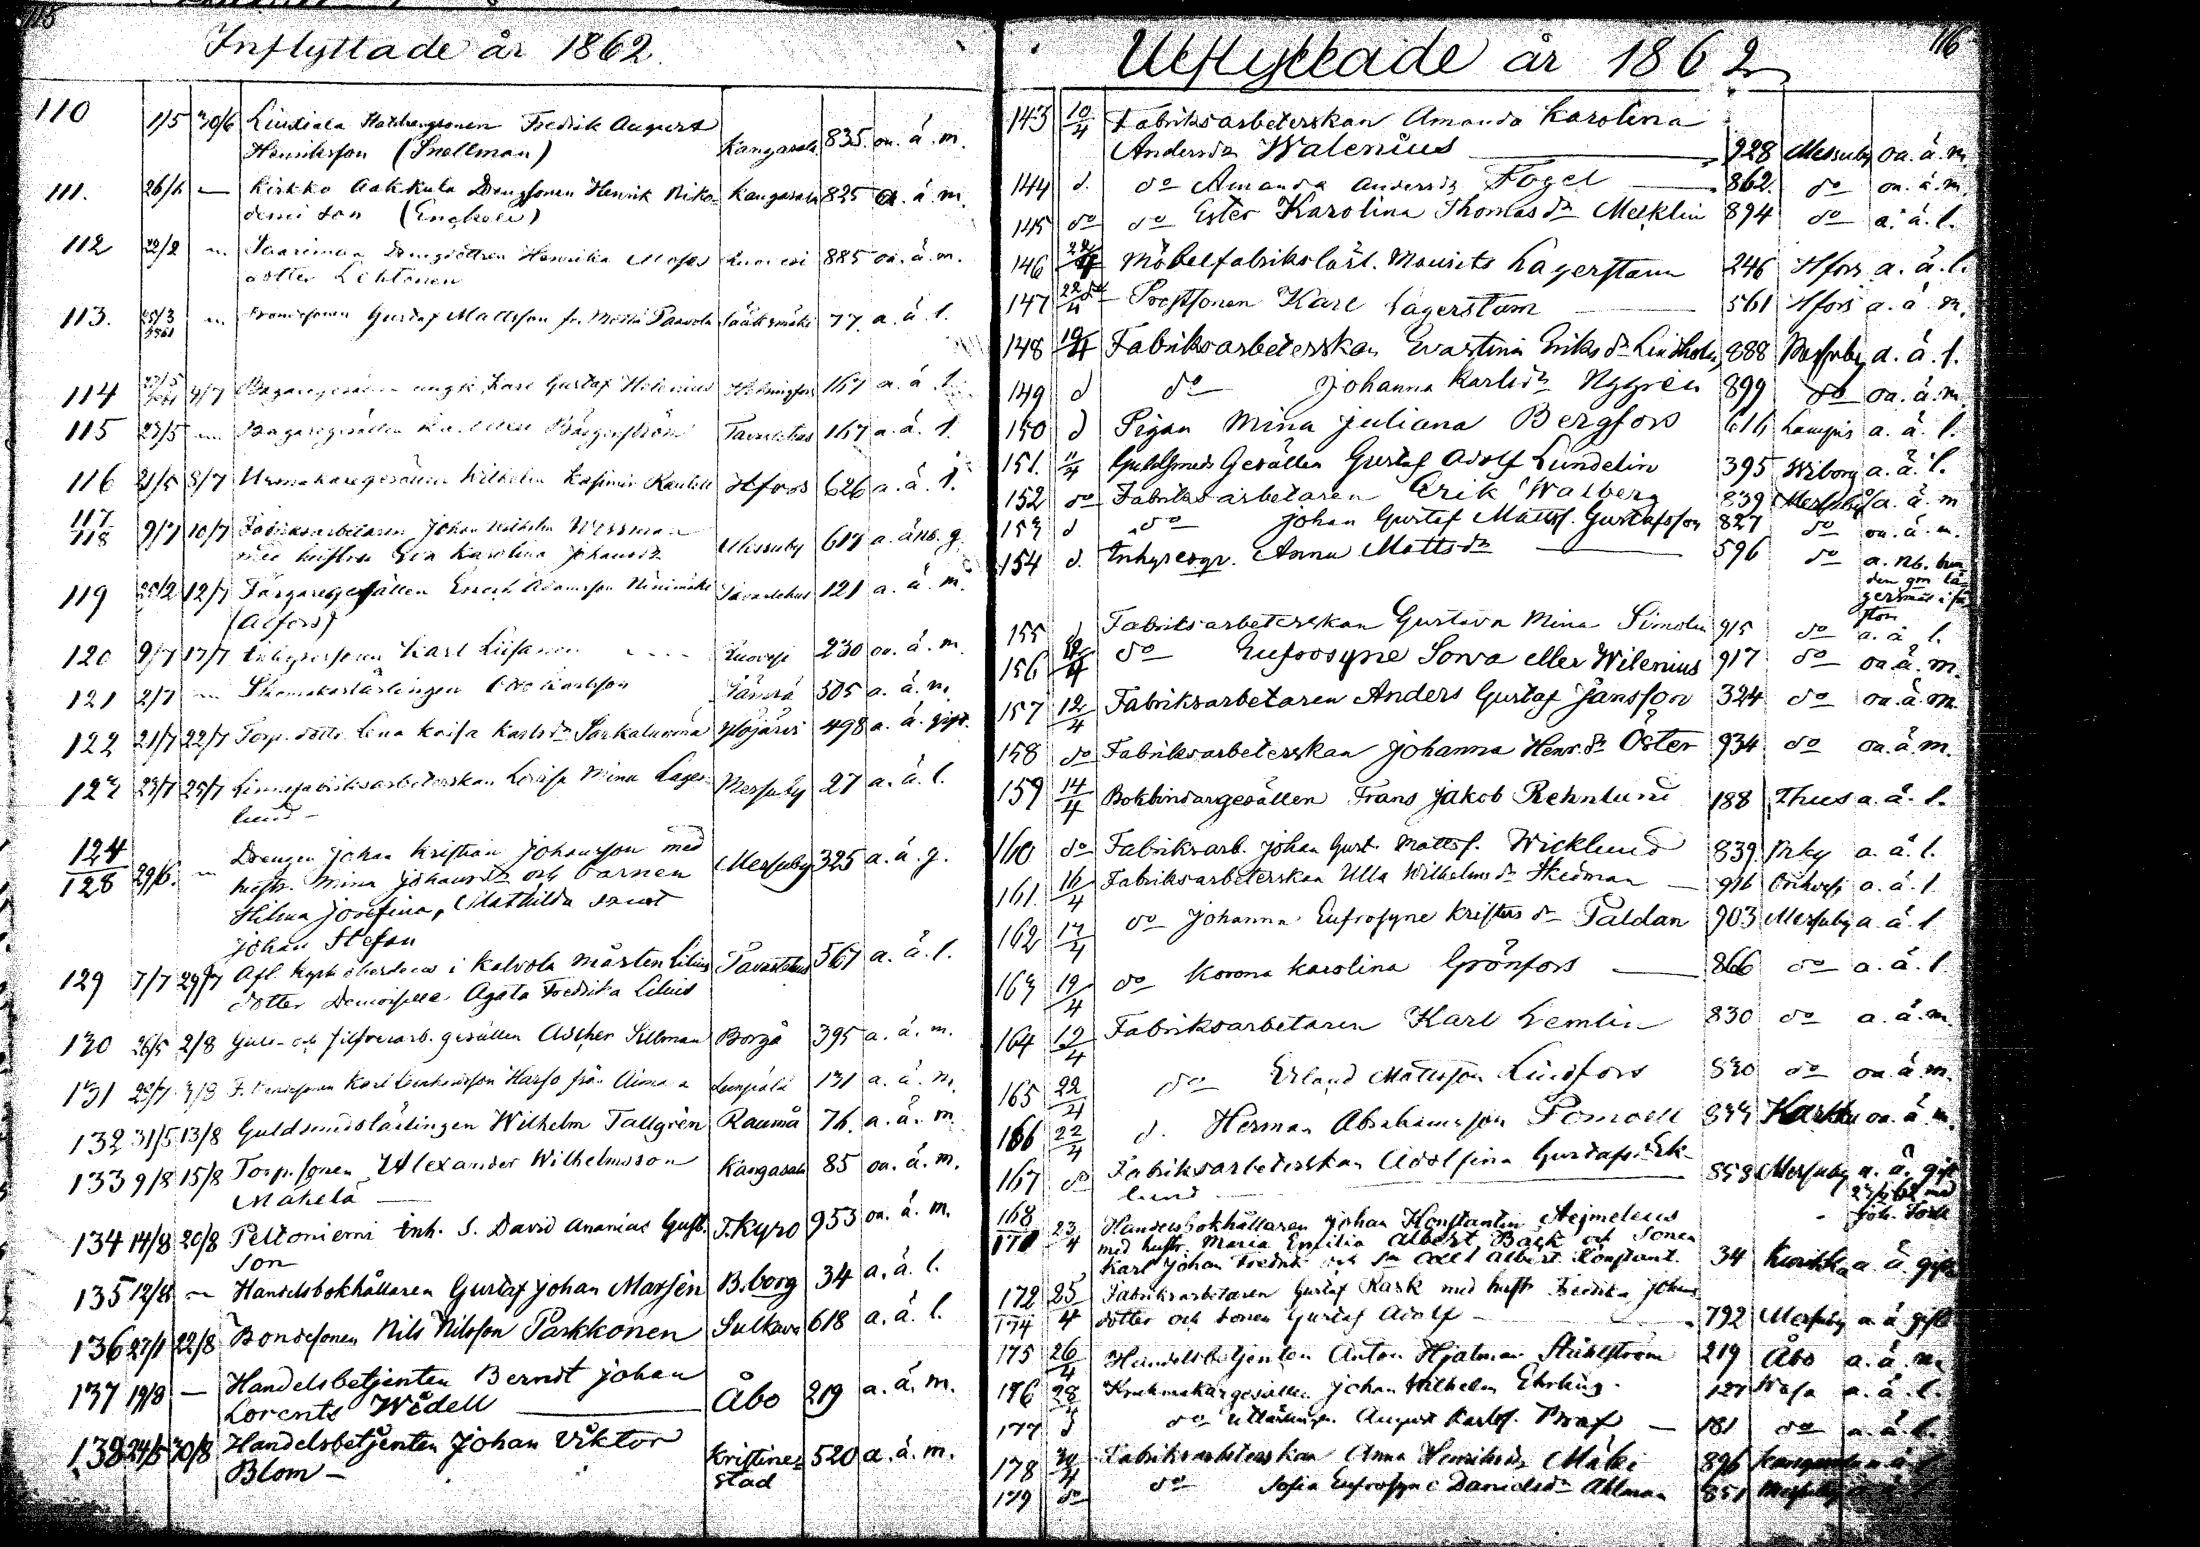 115
Inflyttade år 1862.
110 1/5 30/6 Fredrik August
Henriksson (Snellman) Kangasala 835. oa. å. m.
111. 26/6 — Kirkko Aakkula Drengsonen Henrik Niko- Kangasala 825 oa. å. m.
demi son
112 22/2 Saarinen Henrika 885 oa. å. m.
dotter Lehtonen
113. 25/3 1861 Gustaf Mattsson fr. Paavola Sääksmäki 77. a. å. l.
114 9/7 Bagaregesällen Karl Gustaf Helenius Helsingfors 167 a. å. l.
115 23/5 Bagaregesällen Tavastehus 167 a. å. l.
116 21/5 8/7 Urmakaregesällen Wilhelm Kasimir Hfors 626 a. å. l.
117
118 9/7 10/7 Fabriksarbetaren Johan Wilhelm Wessman
med hustru Eva Karolina Johansdr Messuby 617 a. å. g.
119 12/7 Färgaregesällen Adamsson Niinimäki Tavastehus 121 a. å. m.
(Alfors)
120 9/7 17/7 Karl Liisanen Ruovesi 230 oa. å. m.
121 2/7 Skomakarlärlingen Karlsson 305 a. å. m.
122 21/7 22/7 Torp. dottr. Lena Kaisa Karlsdr Ylöjärvi 498 a. å. gift.
123 23/7 25/7 Linnefabriksarbeterskan Lovisa Mina Lager- Messuby 27 a. å. l.
lund —
124
128 29/6. Drengen Johan Kristian Johansson med Messuby 325 a. å. g.
hustr. Mina Johansdr och barnen
Hilma Josefina, Mathilda samt
Johan Stefan
129 7/7 29/7 Afl. i Kalvola Mårten Lilius Tavastehus 567 a. å. l.
dotter Demoiselle Agata Fredrika Lilius
130 26/5 2/8 Guld- och silfverarb. gesällen Adolf Sellman Borgå 395 a. å. m.
131 Karl Harjo från Aimala Lempäälä 131 a. å. m.
132 31/5 13/8 Guldsmedslärlingen Wilhelm Tallgrén Raumå 76. a. å. m
133 9/8 15/8 Torp. sonen Alexander Wilhelmsson Kangasala 85 oa. å. m.
Mäkelä —
134 14/8 20/8 Peltoniemi inh. s. David Ananias Gust. T.kyro 953 oa. å. m.
son
135 12/8 Handelsbokhållaren Gustaf Johan Marsén B.borg 34 a. å. l.
136 22/8 Bondesonen Nils Nilsson Parkkonen Sulkava 618 a. å. l.
137 19/8 — Handelsbetjenten Berndt Johan
Lorents Wådell — Åbo 219 a. å. m.
138 24/5 30/8 Handelsbetjenten Johan Viktor Kristine- 520 a. å. m.
Blom — stad
116
Utflyttade år 1862
143 10/4 Fabriksarbeterskan Amanda Karolina
Andersdr Walenius — 928 Messuby oa. å. m
144 d. do Amanda Andersdr Fogel — 862. do oa. å. m.
145 do do Ester Karolina Thomasdr Mecklin 894 do a. å. l.
146 22/4 Möbelfabrikslärl. Mauritz Lagerstam 246 Hfors a. å. l.
147 22/4 Prostsonen Karl Lagerstam — 561 Hfors a. å. m.
148 10/4 Fabriksarbeterskan Evastina Eriksdr Lindholm 888 Messuby a. å. l.
149 d do Johanna Karlsdr Nygrén 899 do oa. å. m.
150 d Pigan Mina Juliana Bergfors 616 a. å. l.
151. 11/4 Guldsmeds Gesällen Gustaf Adolf Lundelin 395 Wiborg a. å. l.
152 do Fabriksarbetaren Erik Walberg 839 Messuby a. å. m
153 d do Johan Gustaf Mattss. Gustafsson 827 do oa. å. m.
154 d. Inhysesqv. Anna Mattsdr — 596 do a. Nb.
155 d Fabriksarbeterskan Gustava Mina Simolin 915 do a. å l.
156 12/4 do Eufrosyne Sorva eller Wilenius 917 do oa. å. m.
157 12/4 Fabriksarbetaren Anders Gustaf Jansson 324 do oa. å. m.
158 do Fabriksarbeterskan Johanna Henr.dr Öster 934 do oa. å. m.
159 14/4 Bokbindargesällen Frans Jakob Rehnlund 188 Thus a. å. l.
160 do Fabriksarb. Johan Gust. Mattss. Wicklund 839 a. å. l.
161. 16/4 Fabriksarbeterskan Ulla Wilhelmsdr Hedman — 916 Orihvesi a. å. l
162 17/4 do Johanna Eufrosyne Kristersdr Paldan 903 Messuby a. å. l
163 19/4 do Korona Karolina Grönfors — 866 do a. å. l
164 19/4 Fabriksarbetaren Karl Lemlin 830 do a. å. m.
165 22/4 do Erland Mattsson Lindfors 830 do oa. å. m.
166 22/4 d. Herman Abrahamsson Pomoell Karkku oa. å. m.
167 do Fabriksarbeterskan Adolfina Gustafsdr Ek- 853 Messuby a. å. gift
lund —
168
171 23/4 Handelsbokhållaren Johan Konstantin Aejmelaeus
med hustr. Maria Emilia Albert. Bäck och Sonen
Karl Johan Fredrik Albert Konstant. 34 Kurikka a. å. gift
172
174 25/4 Fabriksarbetaren Gustaf Rask med hustr Fredrika Johans
dotter och sonen Gustaf Adolf — 792 Messuby a. å gift
175 26/4 Handelsbetjenten Anton Hjalmar Ståhlström 219 Åbo a. å. m.
176 28/4 Krukmakargesällen Johan Wilhelm Ehrling. Wasa a. å. l.
177 d do August Karlss. — 181 do a. å. l.
178 30/4 Fabriksarbeterskan Anna Henriksdr Mäki 896 Kangasala
179 do do Sofia Eufrosyne Danielsdr Ahlman 851 Messuby